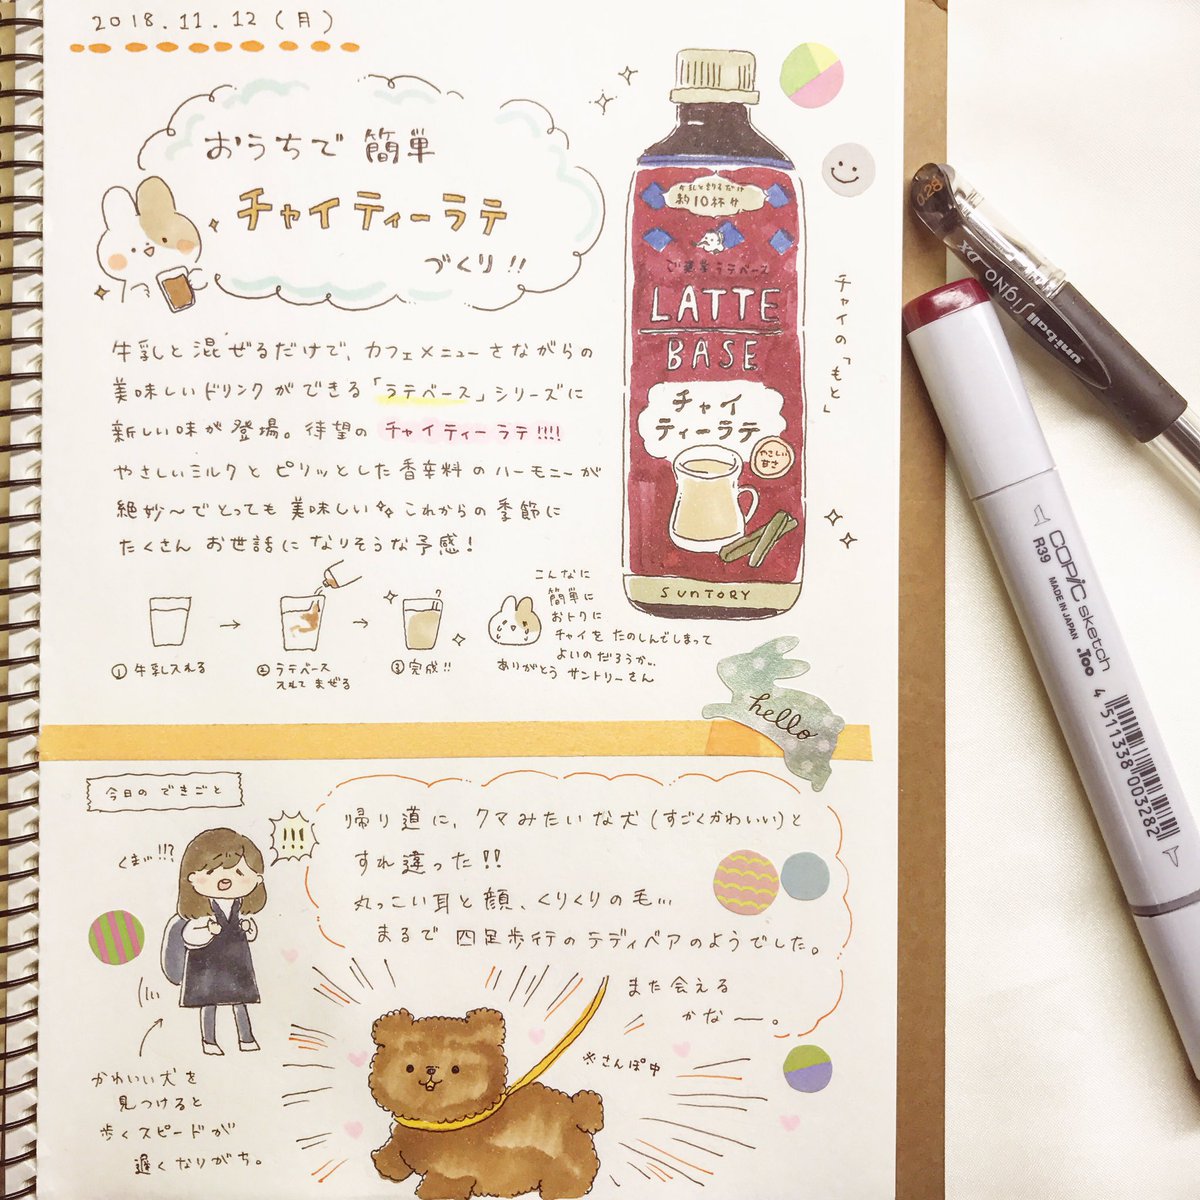 2018.11.12(月)
おうちで簡単
チャイティーラテ
づくり!!
牛乳と混ぜるだけで、カフェメニューさながらの
美味しいドリンクができる「ラテベース」シリーズに
新しい味が登場。待望のチャイティーラテ!!!!
やさしいミルクとピリッとした香辛料のハーモニーが
絶妙〜でとっても美味しい これからの季節に
たくさんお世話になりそうな予感!
①牛乳入れる
→
②ラテベース
入れてまぜる
→
③完成!!
こんなに
簡単に
おトクに
チャイをたのしんでしまって
よいのだろうか…
ありがとうサントリーさん
牛乳と割るだけ
約10杯分
ラテベース
LATTE
BASE
チャイ
ティーラテ
やさしい
甘さ
SUNTORY
チャイの「もと」
hello
今日のできごと
くま!!!?
!!!
帰り道に、クマみたいな犬(すごくかわいい)と
すれ違った!!
丸っこい耳と顔、くりくりの毛…
まるで四足歩行のテディベアのようでした。
また会える
かなー。
※さんぽ中
かわいい犬を
見つけると
歩くスピードが
遅くなりがち。
0.28
uni-ball SigNo DX
COPIC sketch
R39 MADE IN JAPAN .Too
4 511338 003282